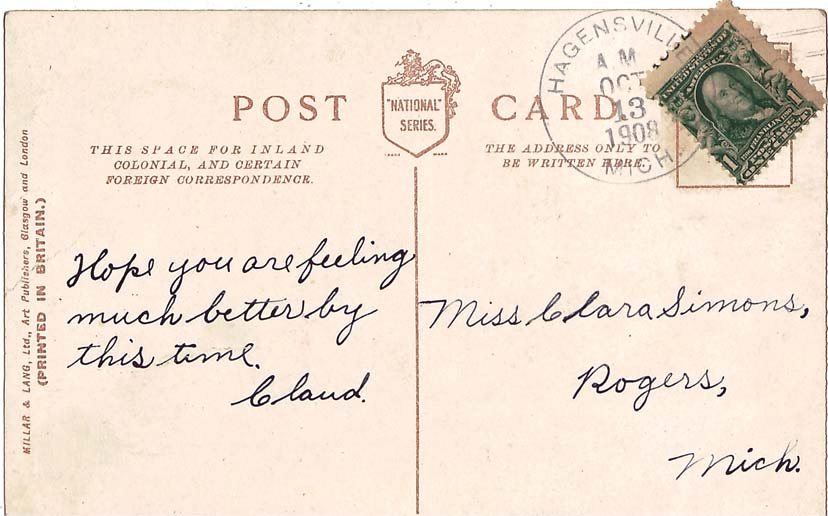 POST CARD
"NATIONAL"
SERIES.
THIS SPACE FOR INLAND
COLONIAL, AND CERTAIN
FOREIGN CORRESPONDENCE.
THE ADDRESS ONLY TO
BE WRITTEN HERE.
HAGENSVILLE
A.M.
OCT
13
1908
MICH.
MILLAR & LANG, Ltd., Art Publishers, Glasgow and London
(PRINTED IN BRITAIN.)
Hope you are feeling
much better by
this time.
Claud.
Miss Clara Simons,
Rogers,
Mich.
1
FRANKLIN
ONE CENT
1